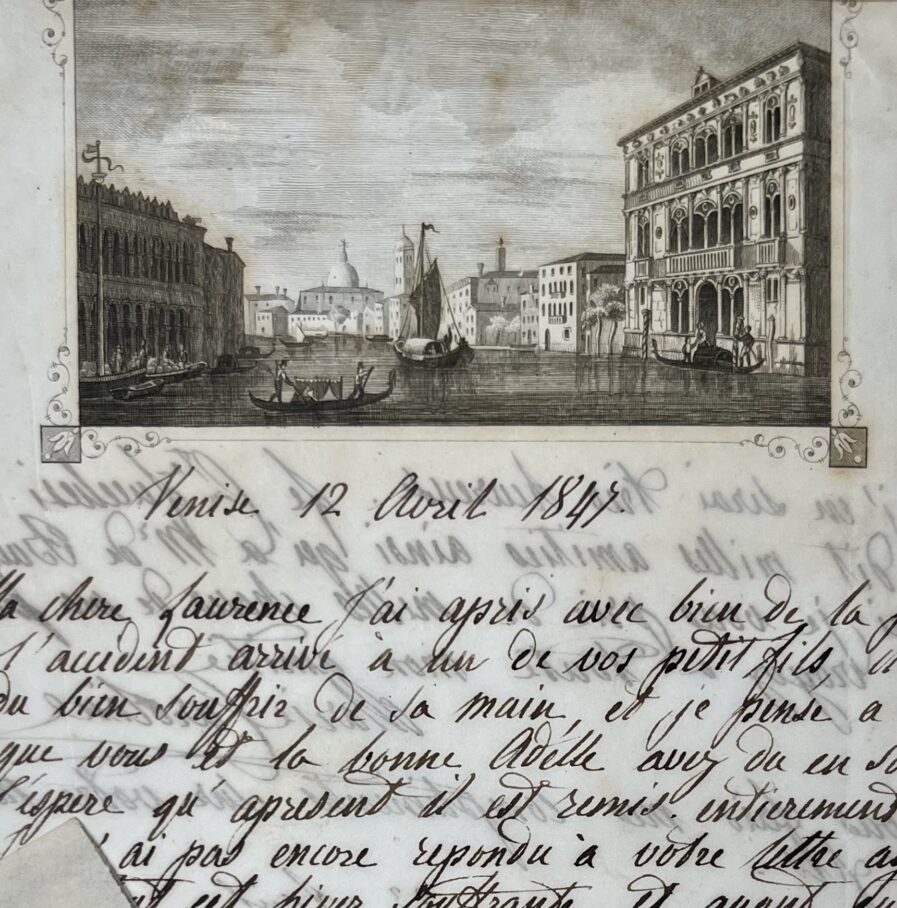 Venise 12 Avril 1847.
chere Laurence j'ai apris avec bien de la
l'accident arrivé à un de vos petit fils,
du bien souffrir de sa main, et je pense a
que vous et la bonne Adélle avez du en
j'espere qu'apresent il est remis entierement
ai pas encore repondu à votre lettre
est hiver souffrante, et ayant